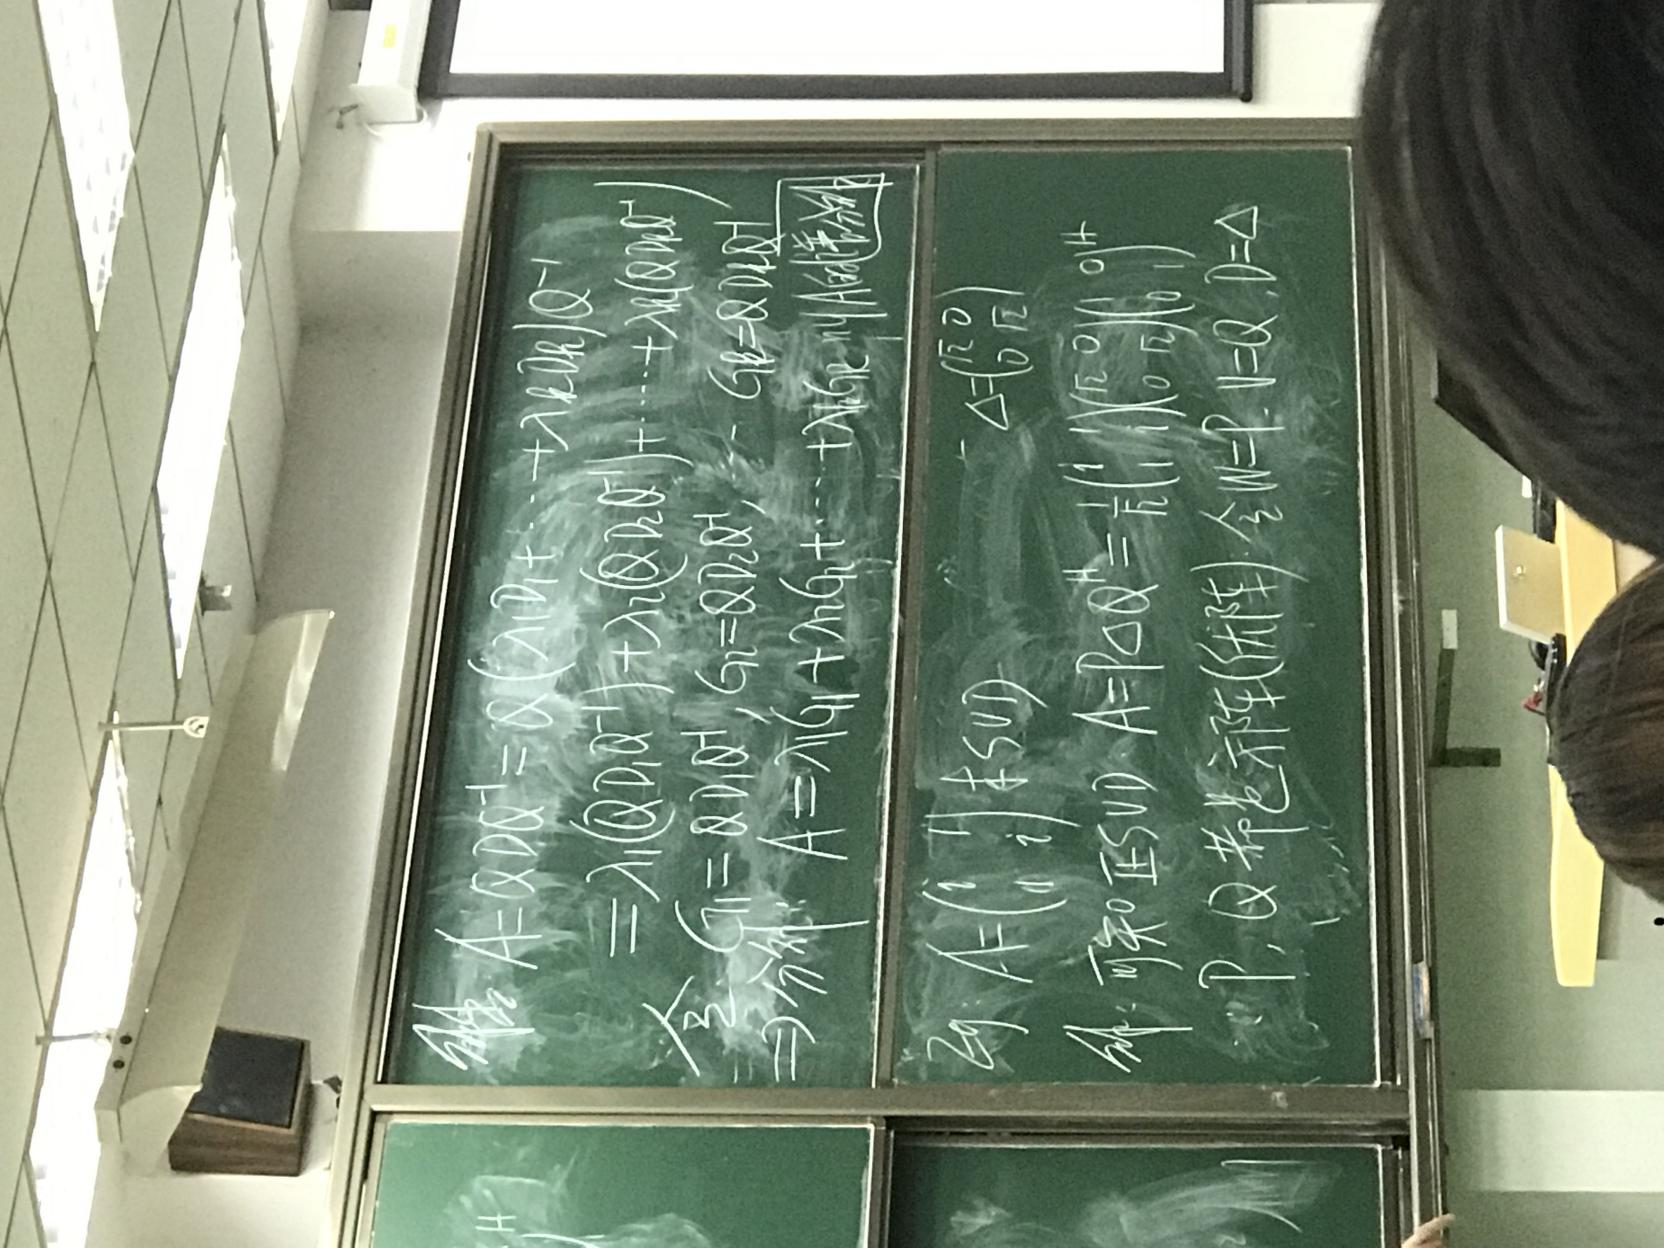 A=QDQ⁻¹=Q(λ₁D₁+⋯+λₖDₖ)Q⁻¹
=λ₁(QD₁Q⁻¹)+λ₂(QD₂Q⁻¹)+⋯+λₖ(QDₖQ⁻¹)
令 G₁=QD₁Q⁻¹, G₂=QD₂Q⁻¹, … Gₖ=QDₖQ⁻¹
⇒分解: A=λ₁G₁+λ₂G₂+⋯+λₖGₖ 叫A的谱分解
Eg A=(i 1
1 i) 求SVD Δ=(√2 0
0 √2)
解: 可知正SVD. A=PΔQᴴ=1/√2(i 1
1 i)(√2 0
0 √2)(1 0
0 1)ᴴ
P, Q 都是方阵(优阵) 令W=P. V=Q, D=Δ
H